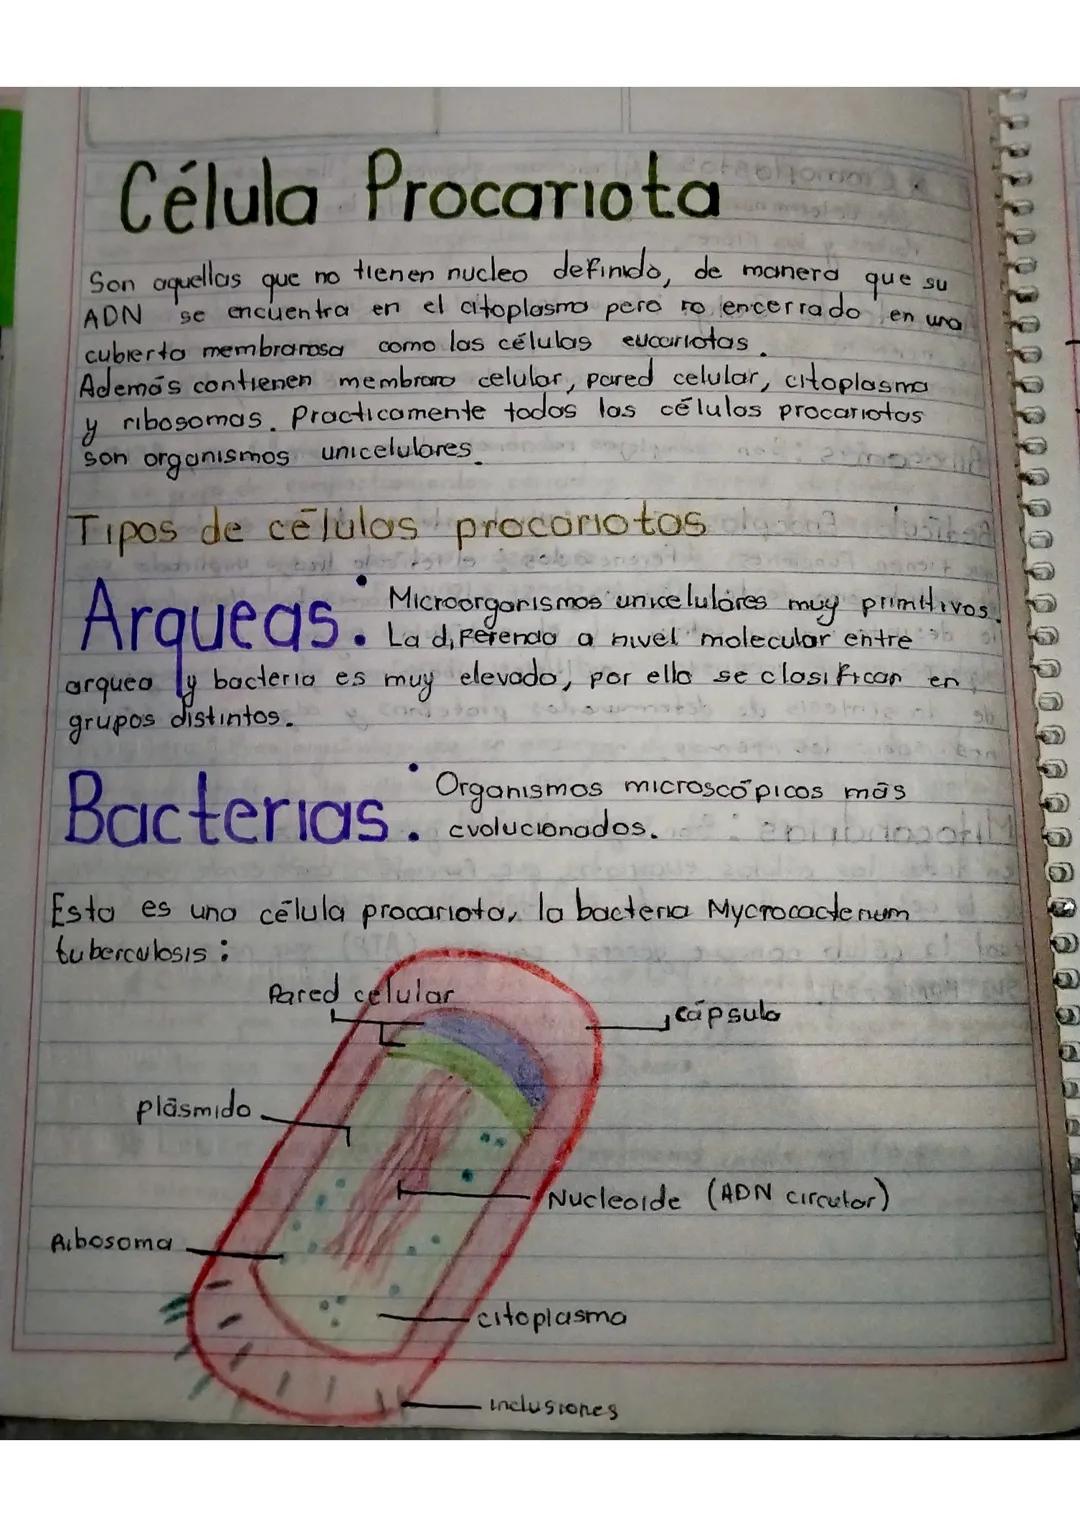 Célula Procariota
Son aquellas que no tienen nucleo definido, de manera que su
ADN se encuentra en el citoplasma pero no encerrado en una
cubierta membranosa como las células eucariotas.
Además contienen membrana celular, pared celular, citoplasma
y ribosomas. Practicamente todas las células procariotas
son organismos unicelulares.
Tipos de células procariotas
Arqueas: Microorganismos unicelulares muy primitivos.
La diferencia a nivel molecular entre
arquea y bacteria es muy elevado, por ello se clasifican en
grupos distintos.
Bacterias: Organismos microscópicos más
evolucionados.
Esta es una célula procariota, la bacteria
tuberculosis:
Pared celular
cápsula
plásmido
Nucleoide (ADN circular)
Ribosoma
citoplasma
inclusiones